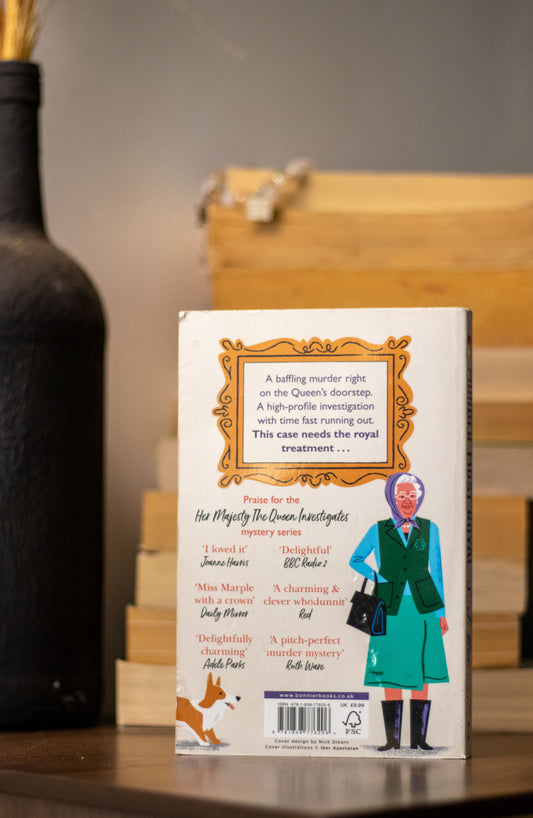 A baffling murder right
on the Queen's doorstep.
A high-profile investigation
with time fast running out.
This case needs the royal
treatment . . .
Praise for the
Her Majesty The Queen Investigates
mystery series
'I loved it'
Joanne Harris
'Delightful'
BBC Radio 2
'Miss Marple
with a crown'
Daily Mirror
'A charming &
clever whodunnit'
Red
'Delightfully
charming'
Adele Parks
'A pitch-perfect
murder mystery'
Ruth Ware
www.bonnierbooks.co.uk
UK £9.99
FSC
Cover design by Nick Stearn
Cover illustrations © Iker Ayestaran